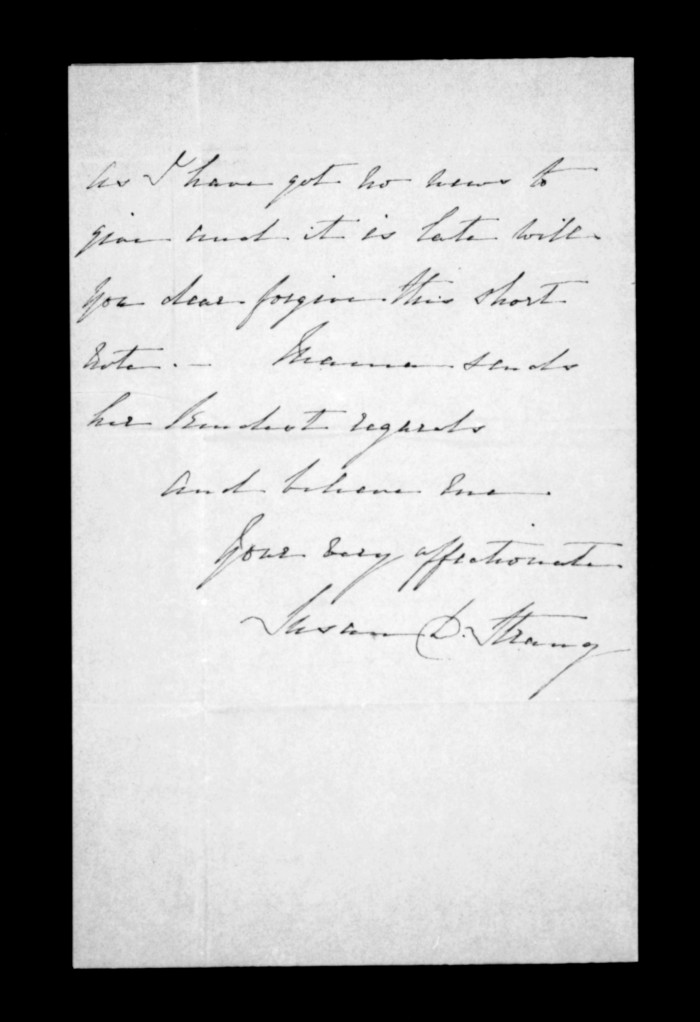 As I have got no news to
give and it is late will
you dear forgive this short
note. — Mama sends
her kindest regards
and believe me.
Your very affectionate
Susan D. Strang